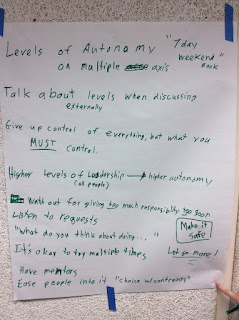 Levels of Autonomy
on multiple axis
"7day
weekend"
book
Talk about levels when discussing
externally
Give up control of everything, but what you
MUST control.
Higher levels of Leadership → higher autonomy
(all people)
Watch out for giving too much responsiblity too soon
Listen to requests
Make it
safe
"What do you think about doing..."
Let go more!
It's okay to try multiple times
Have mentors
Ease people into it "choice w/contraints"